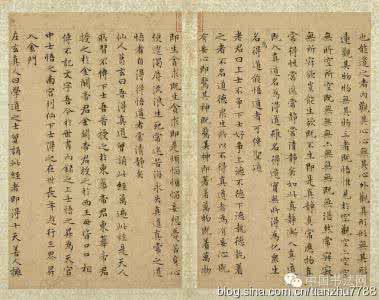 也能遣之者內觀其心心無其心外觀其形形無其形
遠觀其物物無其物三者既悟唯見於空觀空亦空空
無所空所空既無無無亦無無無既無湛然常寂寂
無所寂欲豈能生欲既不生即是真靜真常應物真
常得性常應常靜常清靜矣如此真靜漸入真道
既入真道名為得道雖名得道實無所得為化眾生
名得道能悟道者可傳聖道
老君曰上士不爭下士好爭上德不德下德執德執著
之者不名道德眾生所以不得真道者為有妄心既
有妄心即驚其神既驚其神即著萬物既著萬物
即生貪求既生貪求即是煩惱煩惱妄想憂苦身心
便遭濁辱流浪生死常沉苦海永失真道真常之道
悟者自得得悟道者常清靜矣
仙人葛玄曰吾得真道曾誦此經萬遍此經是天人
所習不傳下士吾昔受之於東華帝君東華帝君
授之於金闕帝君金闕帝君授之於西王母皆口口相
傳不記文字吾今於世書而錄之上士悟之昇為天官
中士悟之南宮列仙下士得之在世長年遊行三界昇
入金門
左玄真人曰學道之士習誦此經者即得十天善人擁
中国书法网
blog.sina.com.cn/tianzhu7788